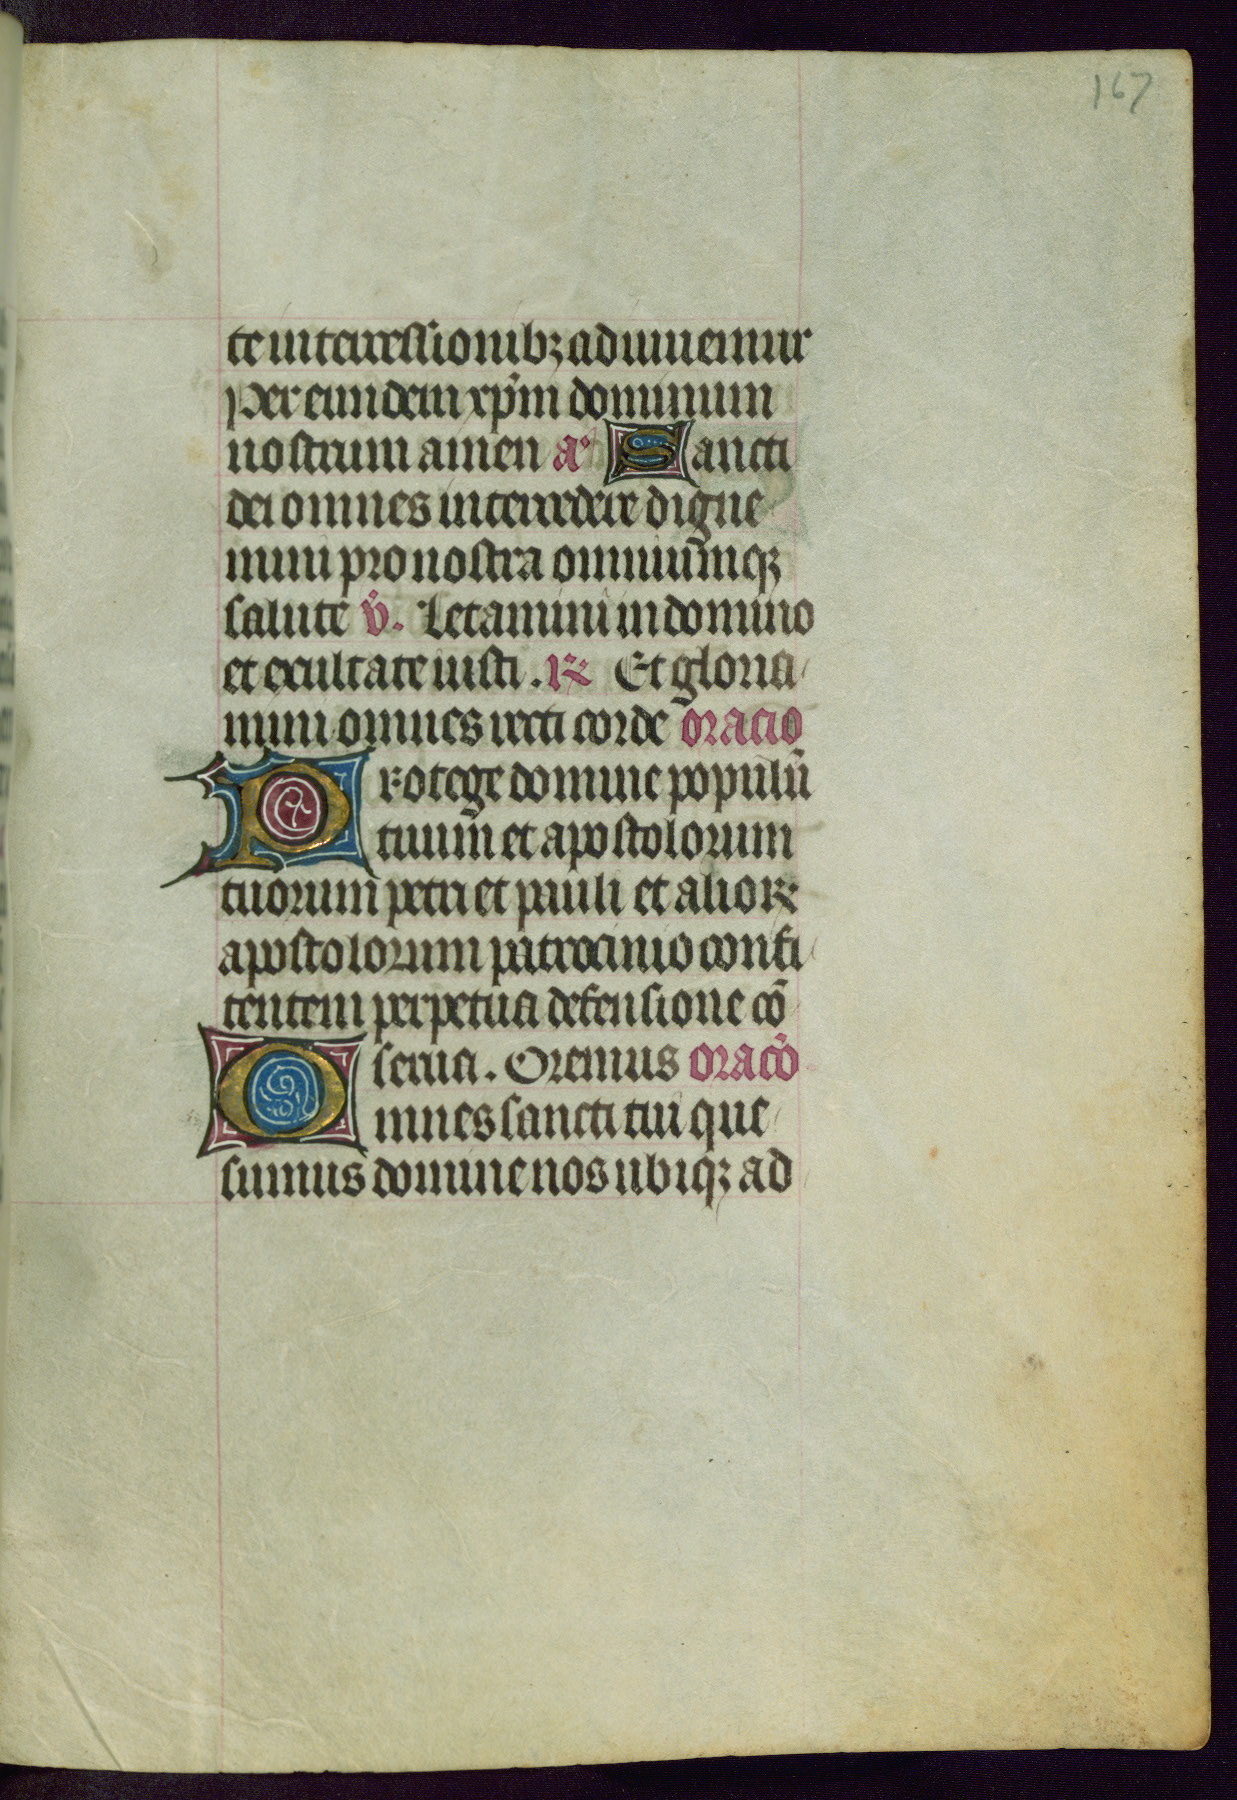 167
te intercessionibꝫ adiuuemur
Per eundem xp̄m dominum
nostrum amen aͦ Sancti
dei omnes intercedere digne
mini pro nostra omniūmqꝫ
salute v̇. Letamini in domino
et exultate iusti. ℟ Et gloria
mini omnes recti corde oracio
Protege domine populū
tuum et apostolorum
tuorum petri et pauli et alioꝝ
apostolorum patrocinio confi
tentem perpetua defensione cō
serua. Oremus oracō
Omnes sancti tui que
sumus domine nos ubiqꝫ ad